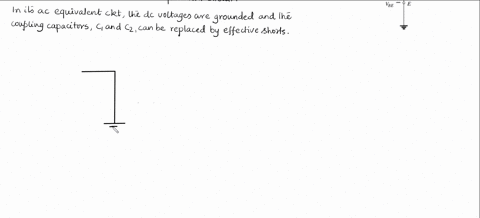 In its ac equivalent ckt, the dc voltages are grounded and the
coupling capacitors, C1 and C2, can be replaced by effective shorts.
E